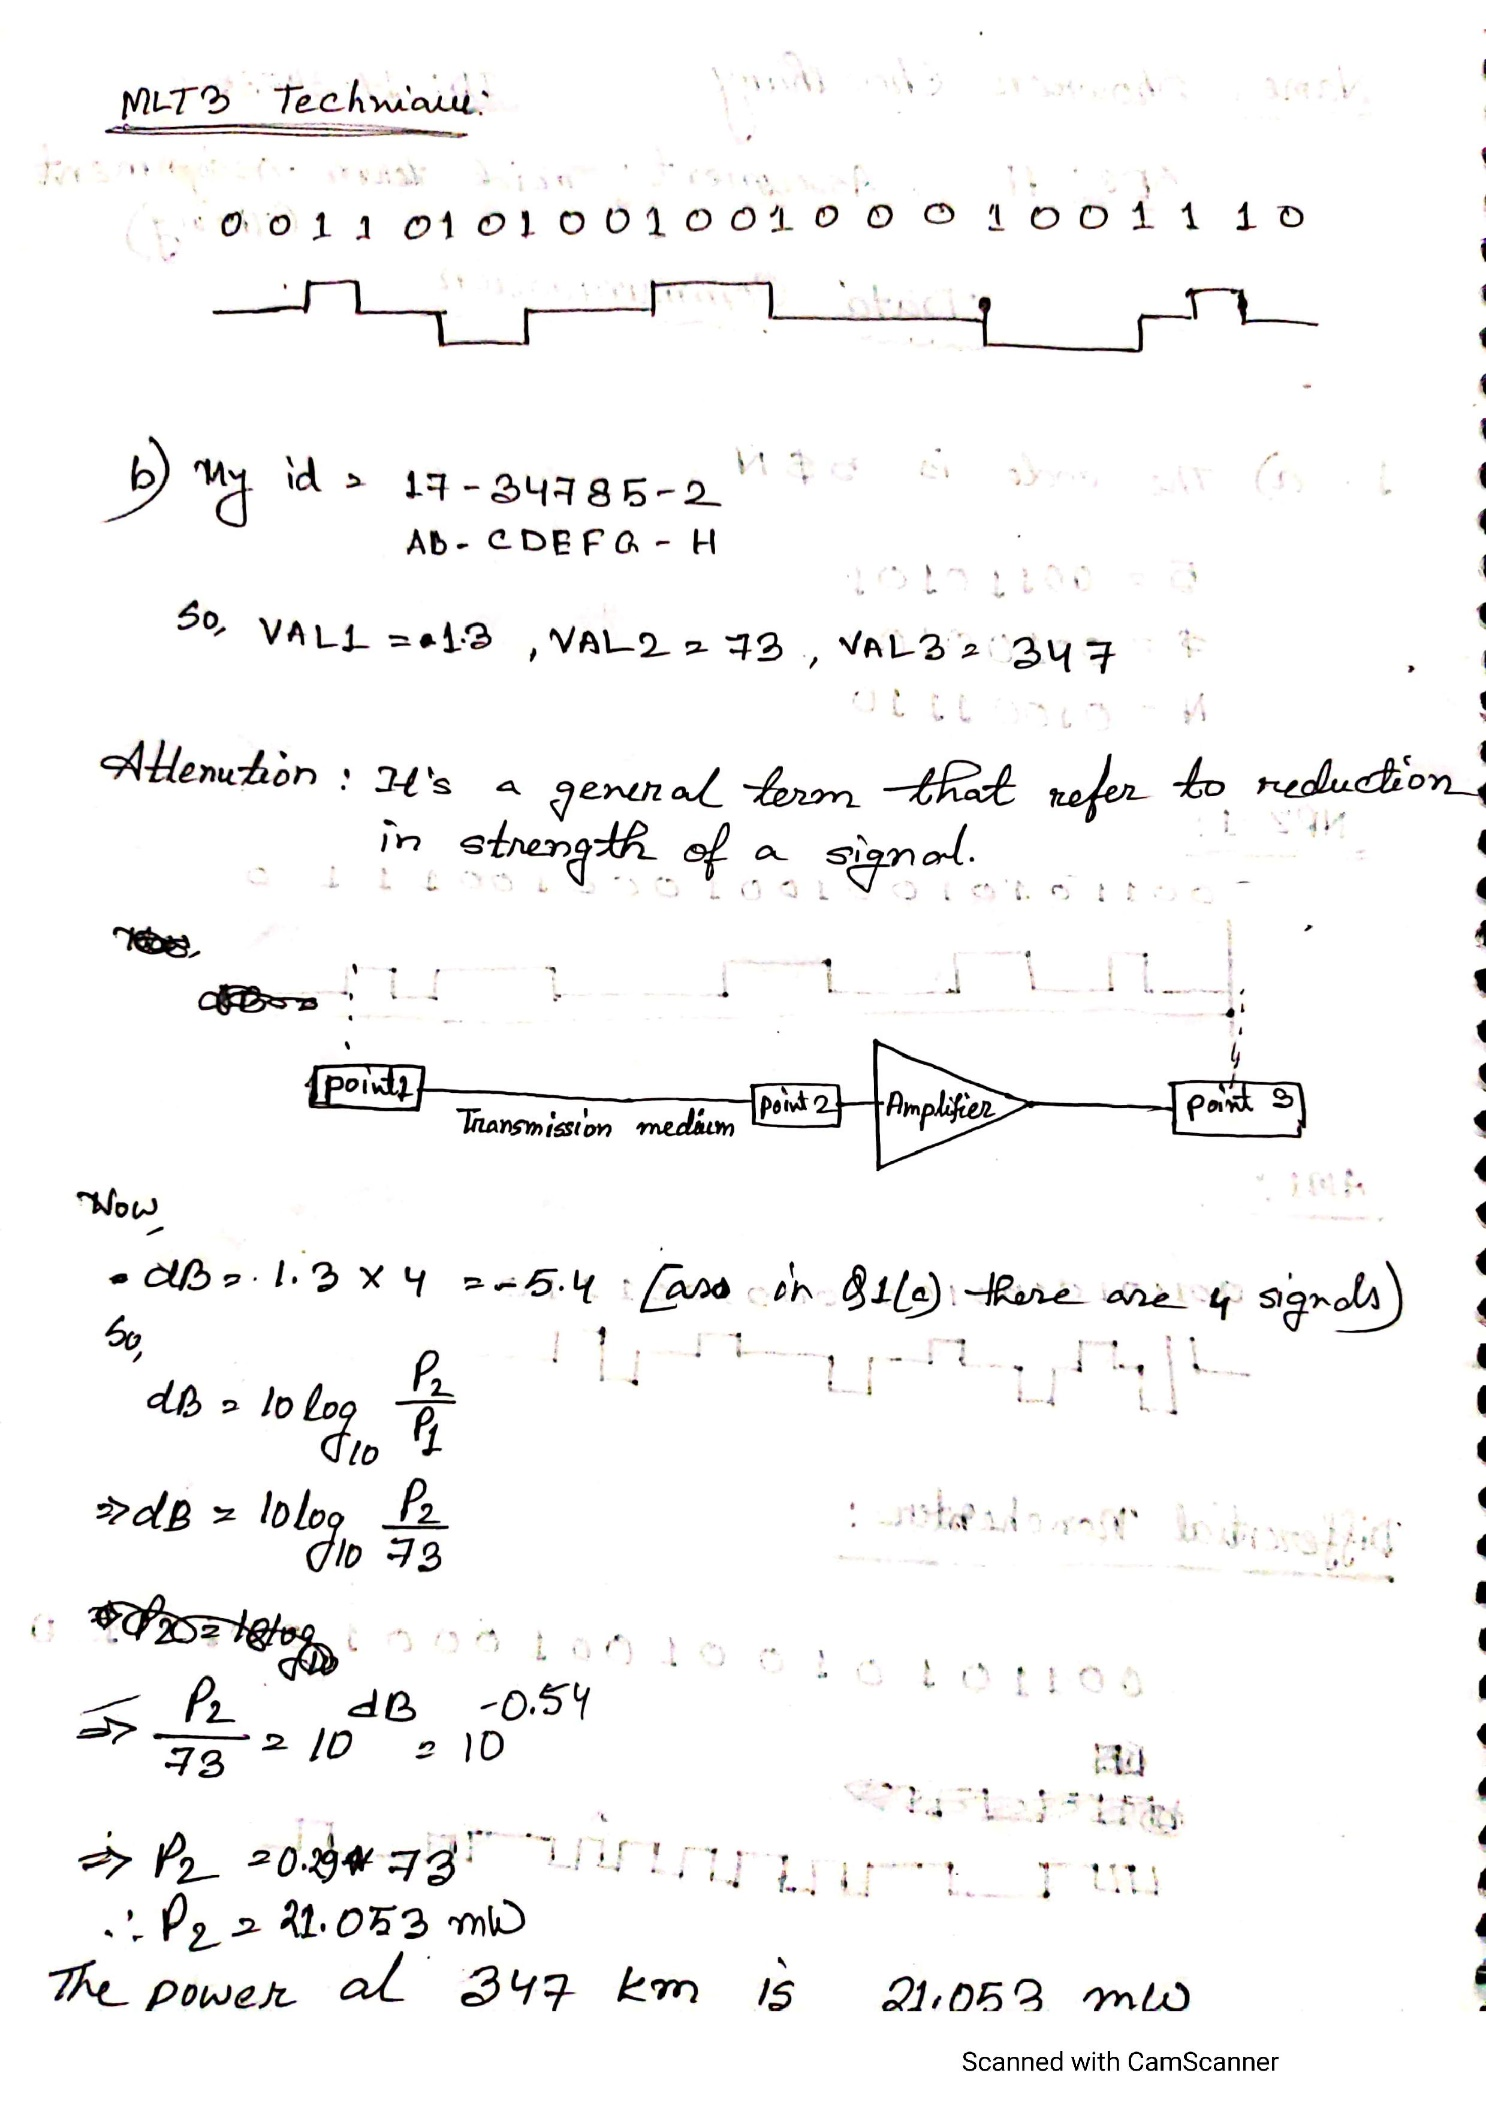 MLT3 Technique:
0 0 1 1 0 1 0 1 0 0 1 0 0 1 0 0 0 1 0 0 1 1 1 0
b) My id = 17-34785-2
AB-CDEFG-H
So, VAL1 = -1.3 , VAL2 = 73 , VAL3 = 347
Attenution : It's a general term that refer to reduction
in strength of a signal.
Point1
Transmission medium
Point 2
Amplifier
Point 3
Now,
- dB = 1.3 x 4 = -5.4 [as in Q1(a) there are 4 signals)
So,
dB = 10 log10 P2/P1
=> dB = 10 log10 P2/73
=> P2/73 = 10^dB = 10^-0.54
=> P2 = 0.29 * 73
∴ P2 = 21.053 mW
The power at 347 km is 21.053 mW
Scanned with CamScanner